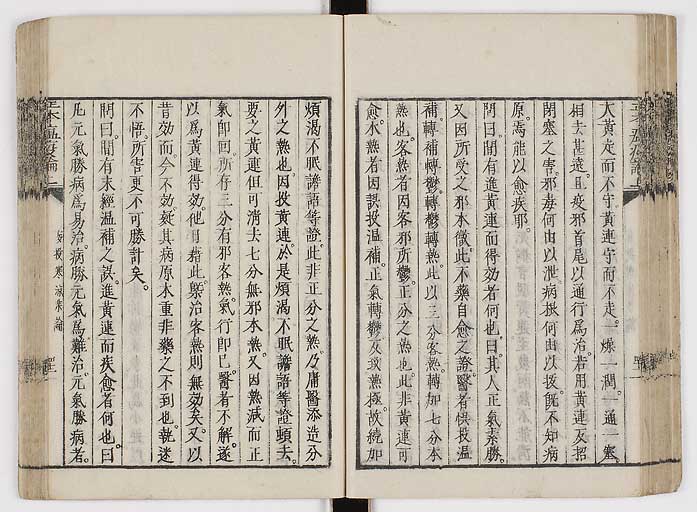 大黃走而不守。黃連守而不走。一燥一潤。一通一塞。
相去甚遠。且疫邪首尾以通行爲治。若用黃連反招
閉塞之害。邪毒何由以泄。病根何由以拔。既不知病
原。焉能以愈疾耶。
問曰。間有進黃連而得效者何也。曰。其人正氣素勝。
又因所受之邪本微。此不藥自愈之證。醫者悞投溫
補。轉補轉鬱。轉鬱轉熱。此以三分客熱。轉加七分本
熱也。客熱者因客邪所鬱。正分之熱也。此非黃連可
愈。本熱者因誤投溫補。正氣轉鬱。反致熱極。故續加
煩渴不眠譫語等證。此非正分之熱。乃庸醫添造分
外之熱也。因投黃連。於是煩渴不眠譫語等證頓去。
要之黃連但可消去七分無邪本熱。又因熱減而正
氣即回。所存三分有邪客熱。氣行即已。醫者不解。遂
以爲黃連得效。他日藉此。槩治客熱則無效矣。又以
昔効而今不効。疑其病原本重。非藥之不到也。執迷
不悟。所害更不可勝計矣。
問曰。間有未經溫補之誤。進黃連而疾愈者何也。曰
凡元氣勝病爲易治。病勝元氣爲難治。元氣勝病者。
妄投寒涼藥論